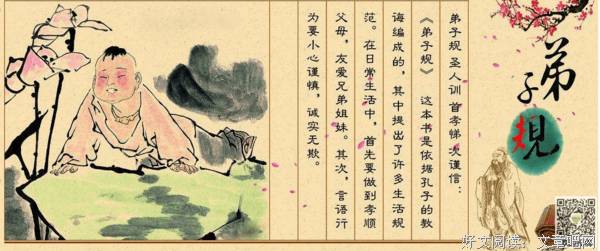 弟子规
弟子规圣人训 首孝悌次谨信：
《弟子规》 这本书是依据孔子的教
诲编成的，其中提出了许多生活规
范。在日常生活中，首先要做到孝顺
父母，友爱兄弟姐妹。其次，言语行
为要小心谨慎，诚实无欺。
好文阅读：文章吧网